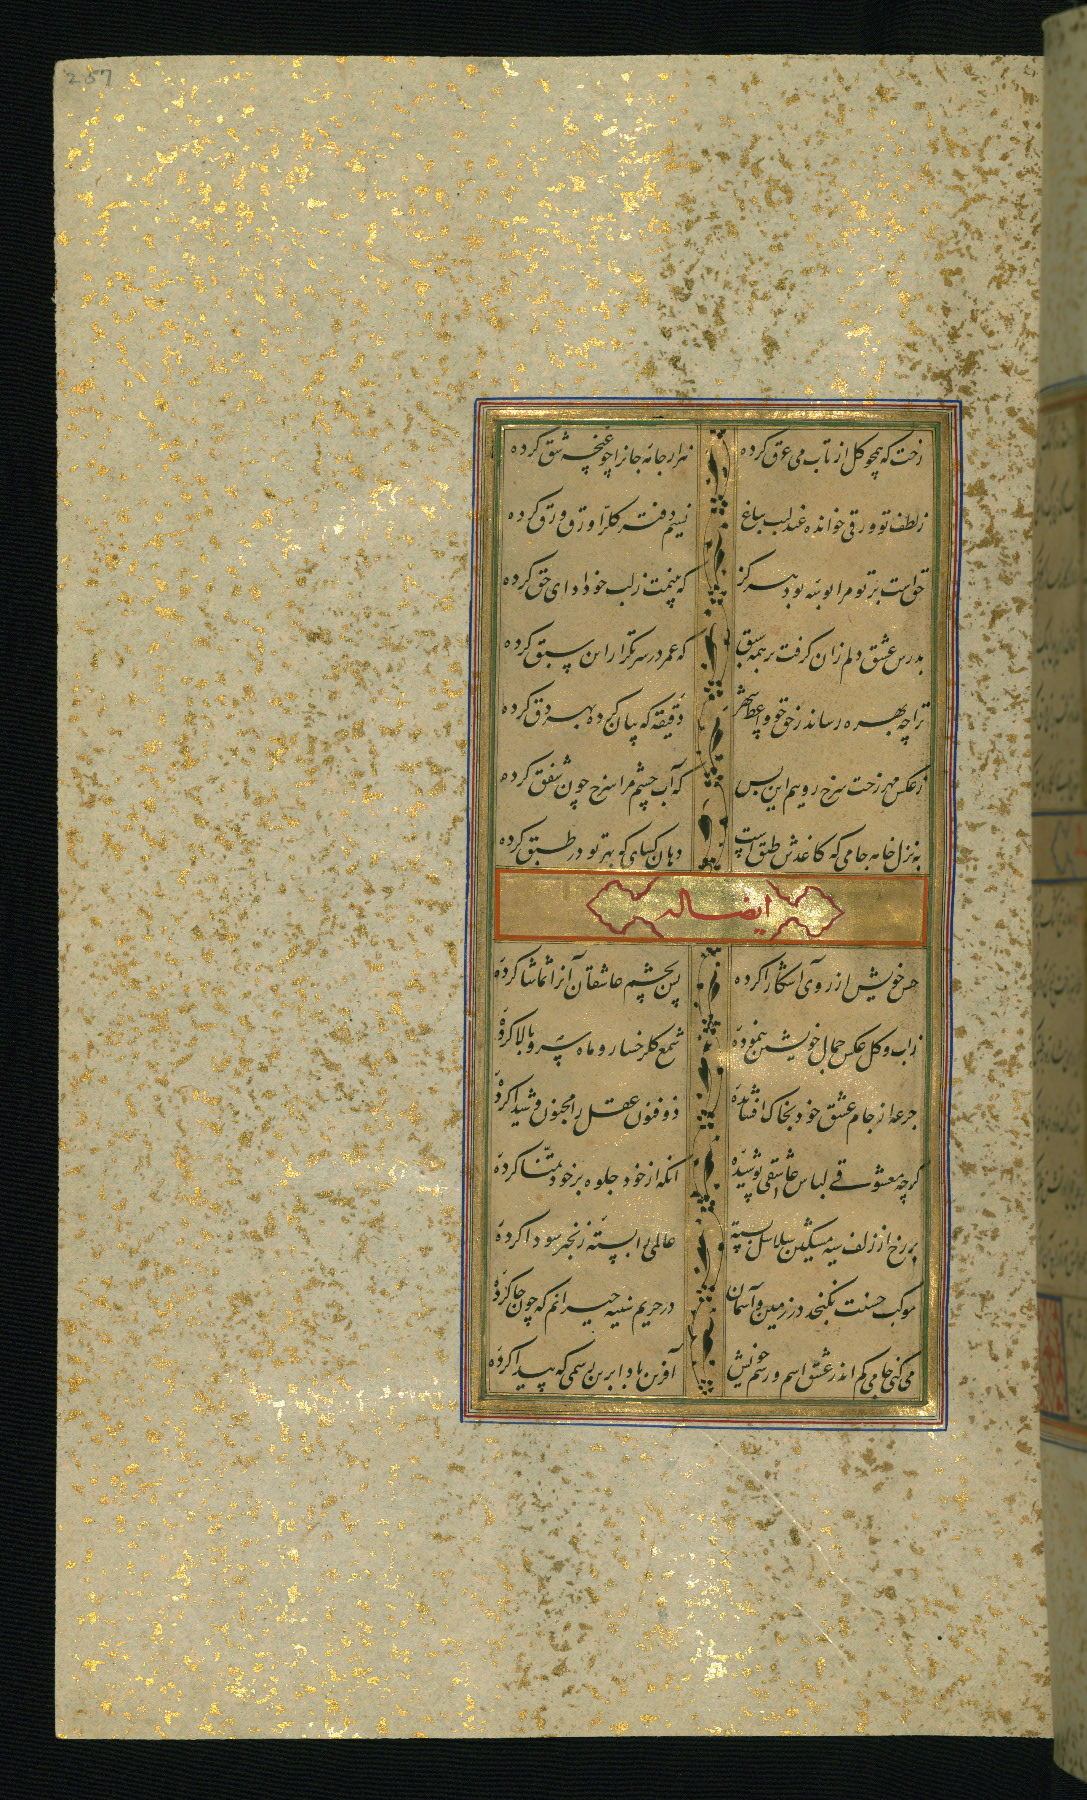 257
رخت که همچو گل از تاب می عرق کرده هزار جامه جانرا چو غنچه شق کرده
ز لطف تو ورقی خوانده عندلیب بباغ نسیم دفتر گل را ورق ورق کرده
حق است بر تو مرا بوسه بود هرگز که بینمت ز لب خود ادای حق کرده
بدرس عشق دلم زان گرفت بر همه سبق که عمر در سر تکرار این سبق کرده
ترا چه بهره رساند ز خوی خود واعظ دقیقه که بیان کرده بهر دق کرده
ز عکس مهر رخت سرخ رویم این بس که آب چشم مرا سرخ چون شفق کرده
به نزل خامه جامی که کاغذش طبق است دهان گشای که بهر تو در طبق کرده
ایضا له
حسن خویش از روی آشکارا کرده پس بچشم عاشقان آنرا تماشا کرده
ز آب و گل عکس جمال خویشتن بنموده شمع گلرخسار و ماه سرو بالا کرده
جرعه از جام عشق خود بخاک افشانده ذوفنون عقل را مجنون و شیدا کرده
گرچه معشوقی لباس عاشقی پوشیده آنکه از خود جلوه بر خود تمنا کرده
بر رخ از زلف سیه مشکین سلاسل بسته عالمی را بسته زنجیر سودا کرده
موکب حسنت نگنجد در زمین و آسمان در حریم سینه حیرانم که چون جا کرده
می کنی جامی کم اندر عشق اسم و رسم خویش آفرین بادا برین رسمی که پیدا کرده